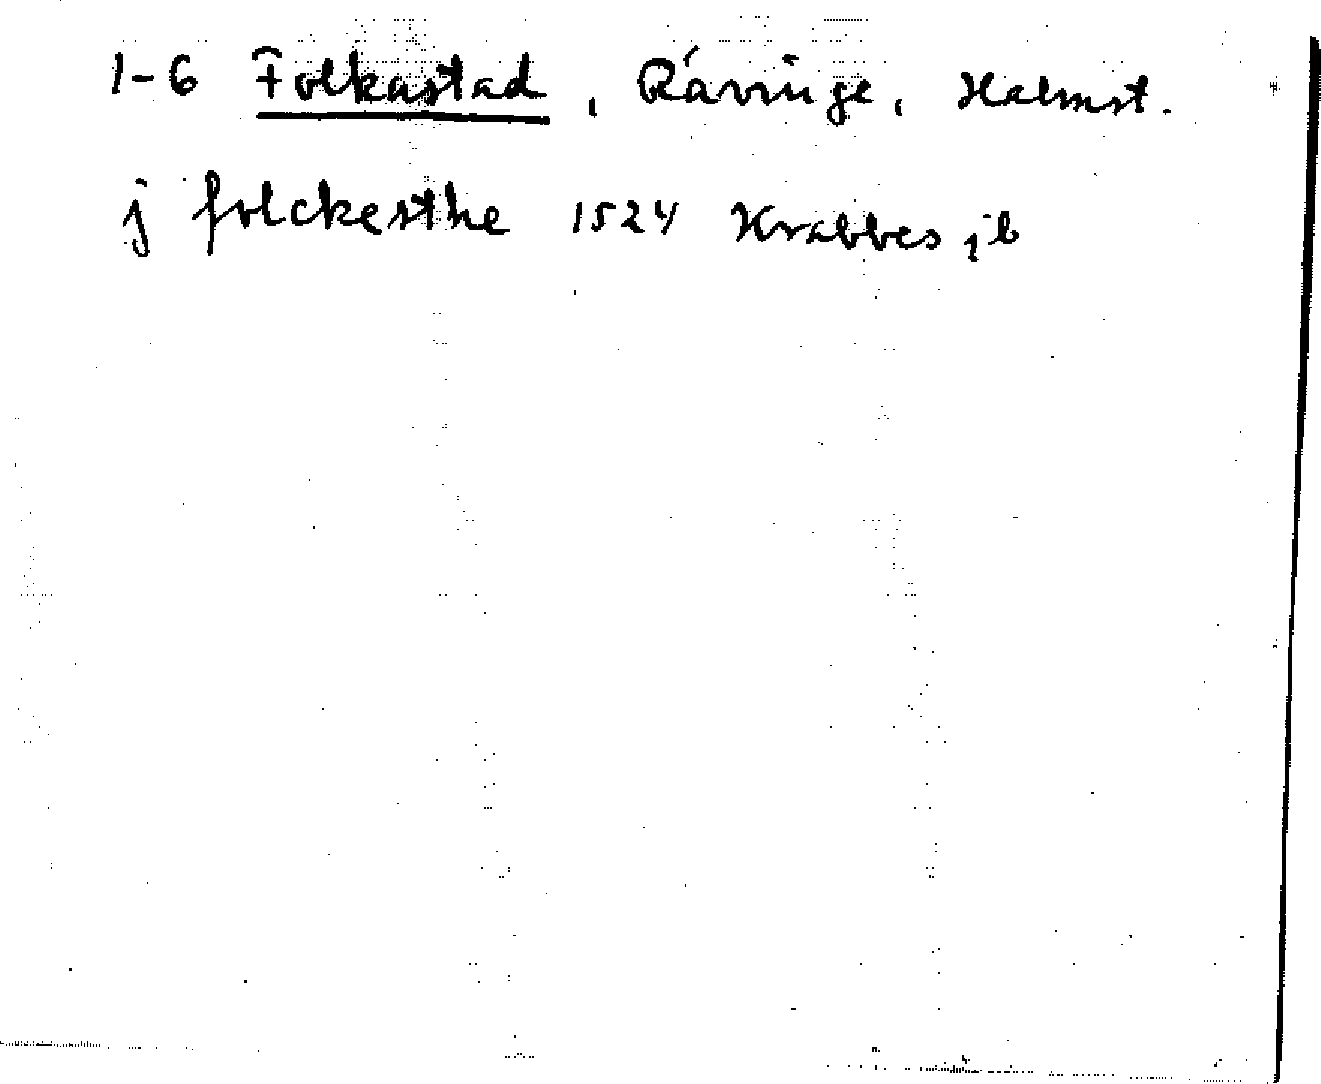 1-6 Folkastad, Rävinge, Halmst.
j folckesthe 1524 Krabbes jb